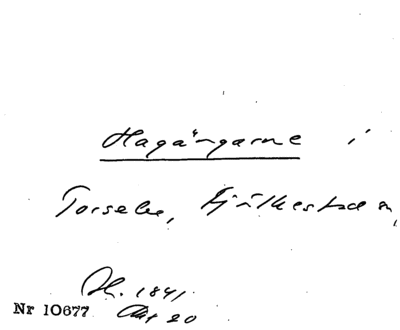 Hagängarne i
Torsebro, Fjälkestad sn,
H. 1841
Nr 10677 Akt 20